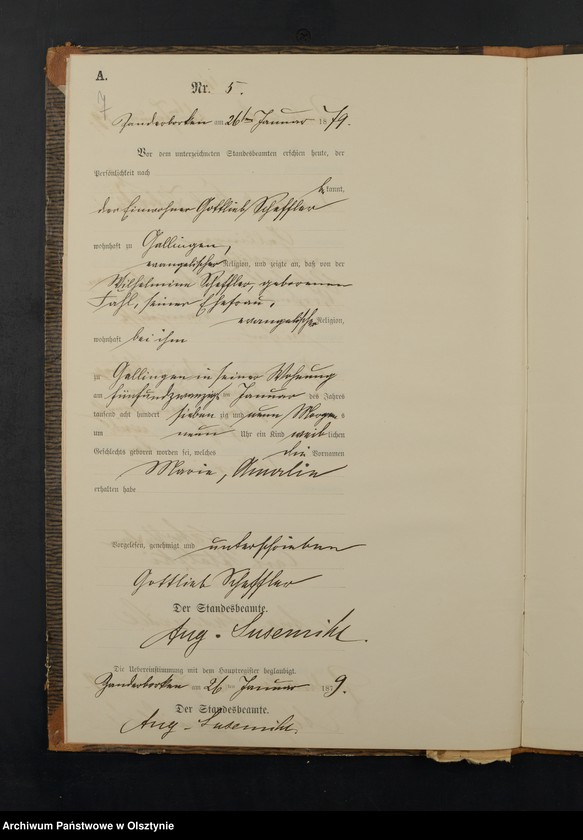 A.
7
Nr. 5.
Zanderborken am 26ten Januar 1879.
Vor dem unterzeichneten Standesbeamten erschien heute, der
Persönlichkeit nach
bekannt,
der Einwohner Gottlieb Scheffler
wohnhaft zu Gallingen,
evangelischer Religion, und zeigte an, daß von der
Wilhelmine Scheffler, geborenen
Fahl, seiner Ehefrau,
evangelischer Religion,
wohnhaft bei ihm
zu Gallingen in seiner Wohnung
am fünfundzwanzigsten Januar des Jahres
tausend acht hundert siebenzig und neun Morgens
um neun Uhr ein Kind weiblichen
Geschlechts geboren worden sei, welches die Vornamen
Marie, Amalie
erhalten habe
Vorgelesen, genehmigt und unterschrieben
Gottlieb Scheffler
Der Standesbeamte.
Aug. Susemihl.
Die Uebereinstimmung mit dem Hauptregister beglaubigt.
Zanderborken am 26 ten Januar 1879.
Der Standesbeamte.
Aug. Susemihl.
Archiwum Państwowe w Olsztynie